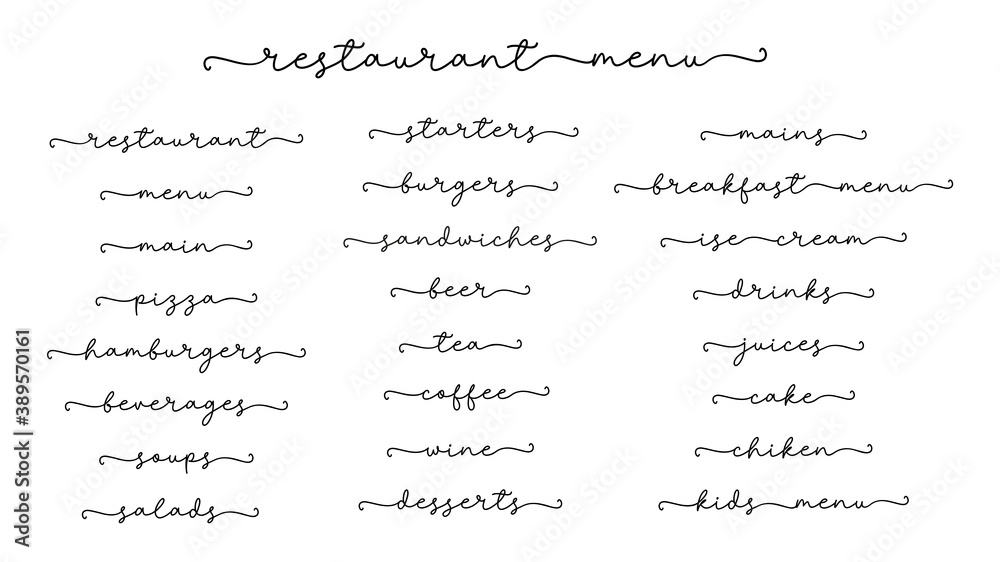 restaurant menu
restaurant
menu
main
pizza
hamburgers
beverages
soups
salads
starters
burgers
sandwiches
beer
tea
coffee
wine
desserts
mains
breakfast menu
ise cream
drinks
juices
cake
chiken
kids menu
Adobe Stock | #389570161